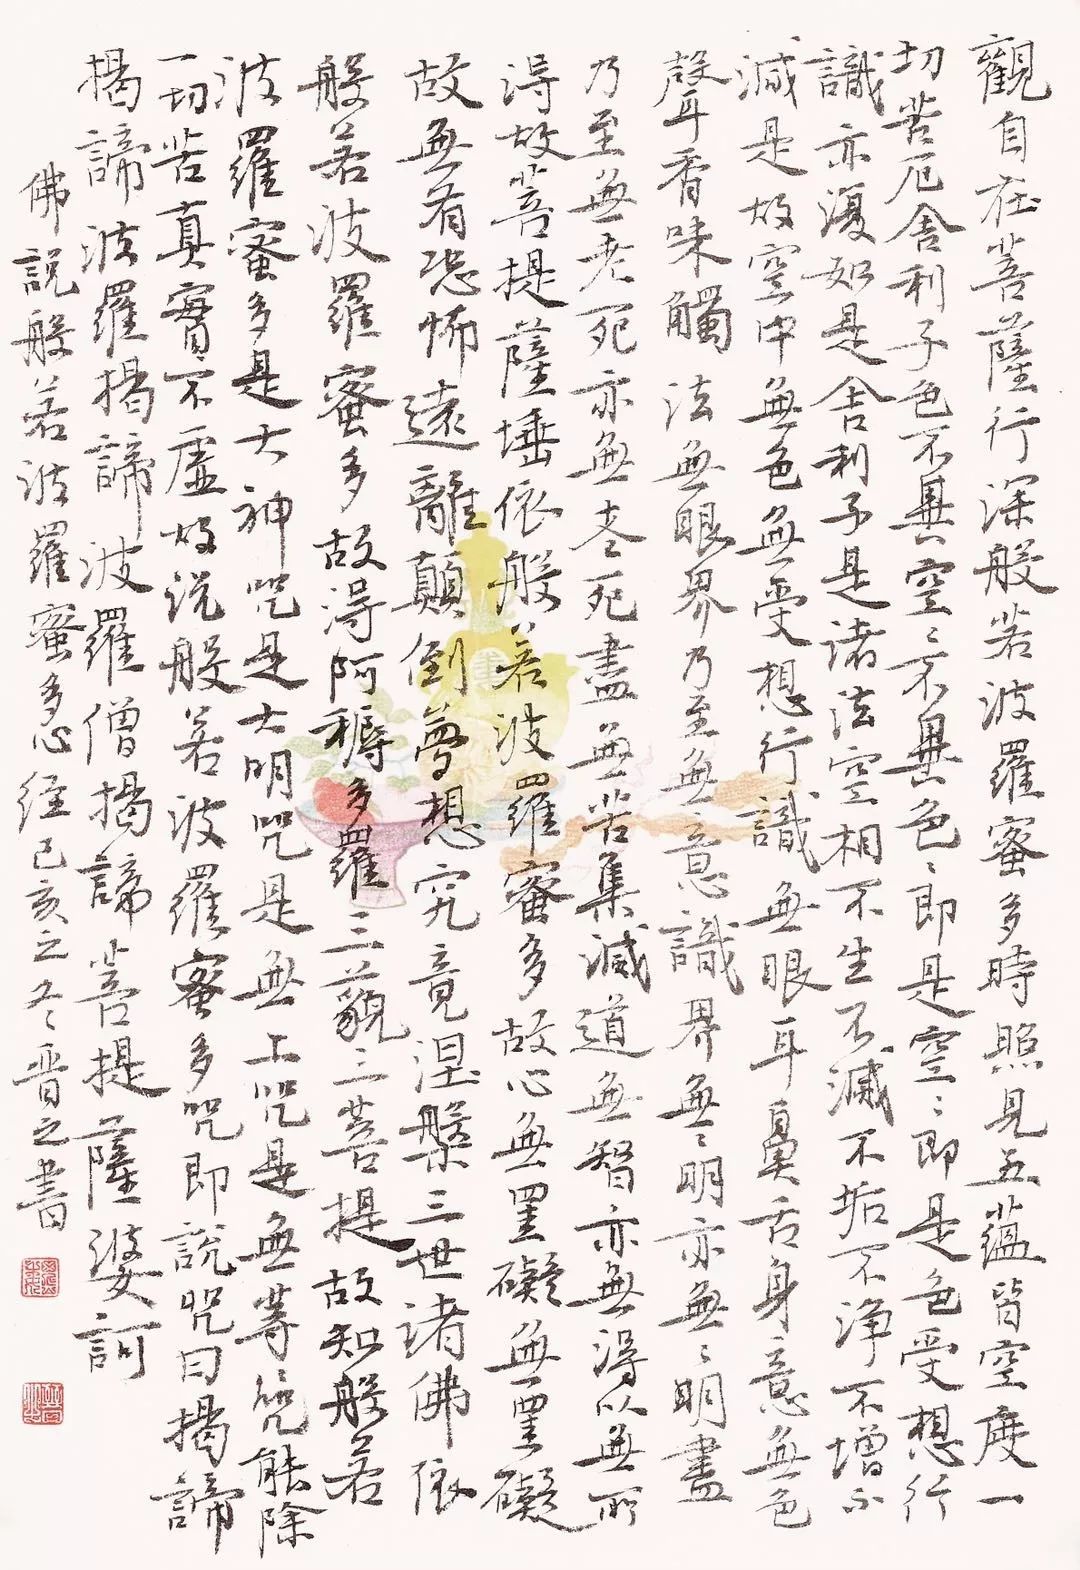 觀自在菩薩行深般若波羅蜜多時照見五蘊皆空度一
切苦厄舍利子色不異空〻不異色〻即是空〻即是色受想行
識亦復如是舍利子是諸法空相不生不滅不垢不淨不增不
減是故空中無色無受想行識無眼耳鼻舌身意無色
聲香味觸法無眼界乃至無意識界無〻明亦無〻明盡
乃至無老死亦無老死盡無苦集滅道無智亦無得以無所
得故菩提薩埵依般若波羅蜜多故心無罣礙無罣礙
故無有恐怖遠離顛倒夢想究竟涅槃三世諸佛依
般若波羅蜜多故得阿耨多羅三藐三菩提故知般若
波羅蜜多是大神咒是大明咒是無上咒是無等咒能除
一切苦真實不虛故說般若波羅蜜多咒即說咒曰揭諦
揭諦波羅揭諦波羅僧揭諦菩提薩婆訶
佛說般若波羅蜜多心經己亥之冬晋之書